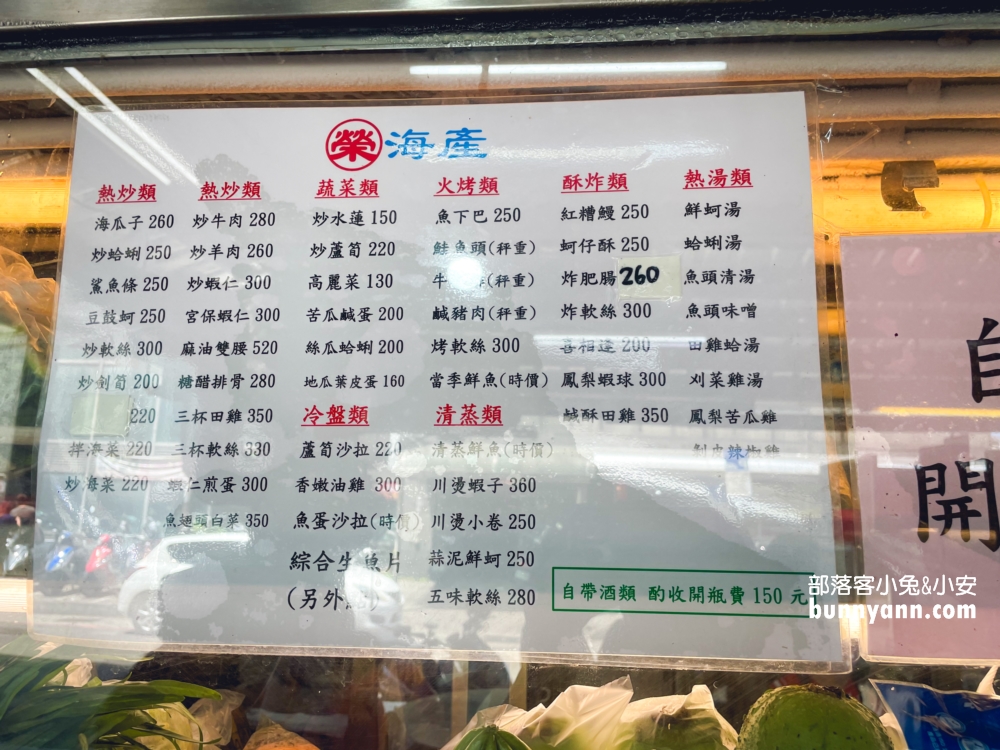 榮海產
熱炒類
海瓜子 260
炒蛤蜊 250
鯊魚條 250
豆鼓蚵 250
炒軟絲 300
炒劍筍 200
220
拌海菜 220
炒海菜 220
熱炒類
炒牛肉 280
炒羊肉 260
炒蝦仁 300
宮保蝦仁 300
麻油雙腰 520
糖醋排骨 280
三杯田雞 350
三杯軟絲 330
蝦仁煎蛋 300
魚翅頭白菜 350
蔬菜類
炒水蓮 150
炒蘆筍 220
高麗菜 130
苦瓜鹹蛋 200
絲瓜蛤蜊 200
地瓜葉皮蛋 160
冷盤類
蘆筍沙拉 220
香嫩油雞 300
魚蛋沙拉(時價)
綜合生魚片
(另外
火烤類
魚下巴 250
鮭魚頭(秤重)
牛 (秤重)
鹹豬肉(秤重)
烤軟絲 300
當季鮮魚(時價)
清蒸類
清蒸鮮魚(時價)
川燙蝦子 360
川燙小卷 250
蒜泥鮮蚵 250
五味軟絲 280
酥炸類
紅糟鰻 250
蚵仔酥 250
炸肥腸 260
炸軟絲 300
喜相逢 200
鳳梨蝦球 300
鹹酥田雞 350
熱湯類
鮮蚵湯
蛤蜊湯
魚頭清湯
魚頭味噌
田雞蛤湯
刈菜雞湯
鳳梨苦瓜雞
剝皮辣椒雞
自帶酒類 酌收開瓶費 150 元
自
開
部落客小兔&小安
bunnyann.com